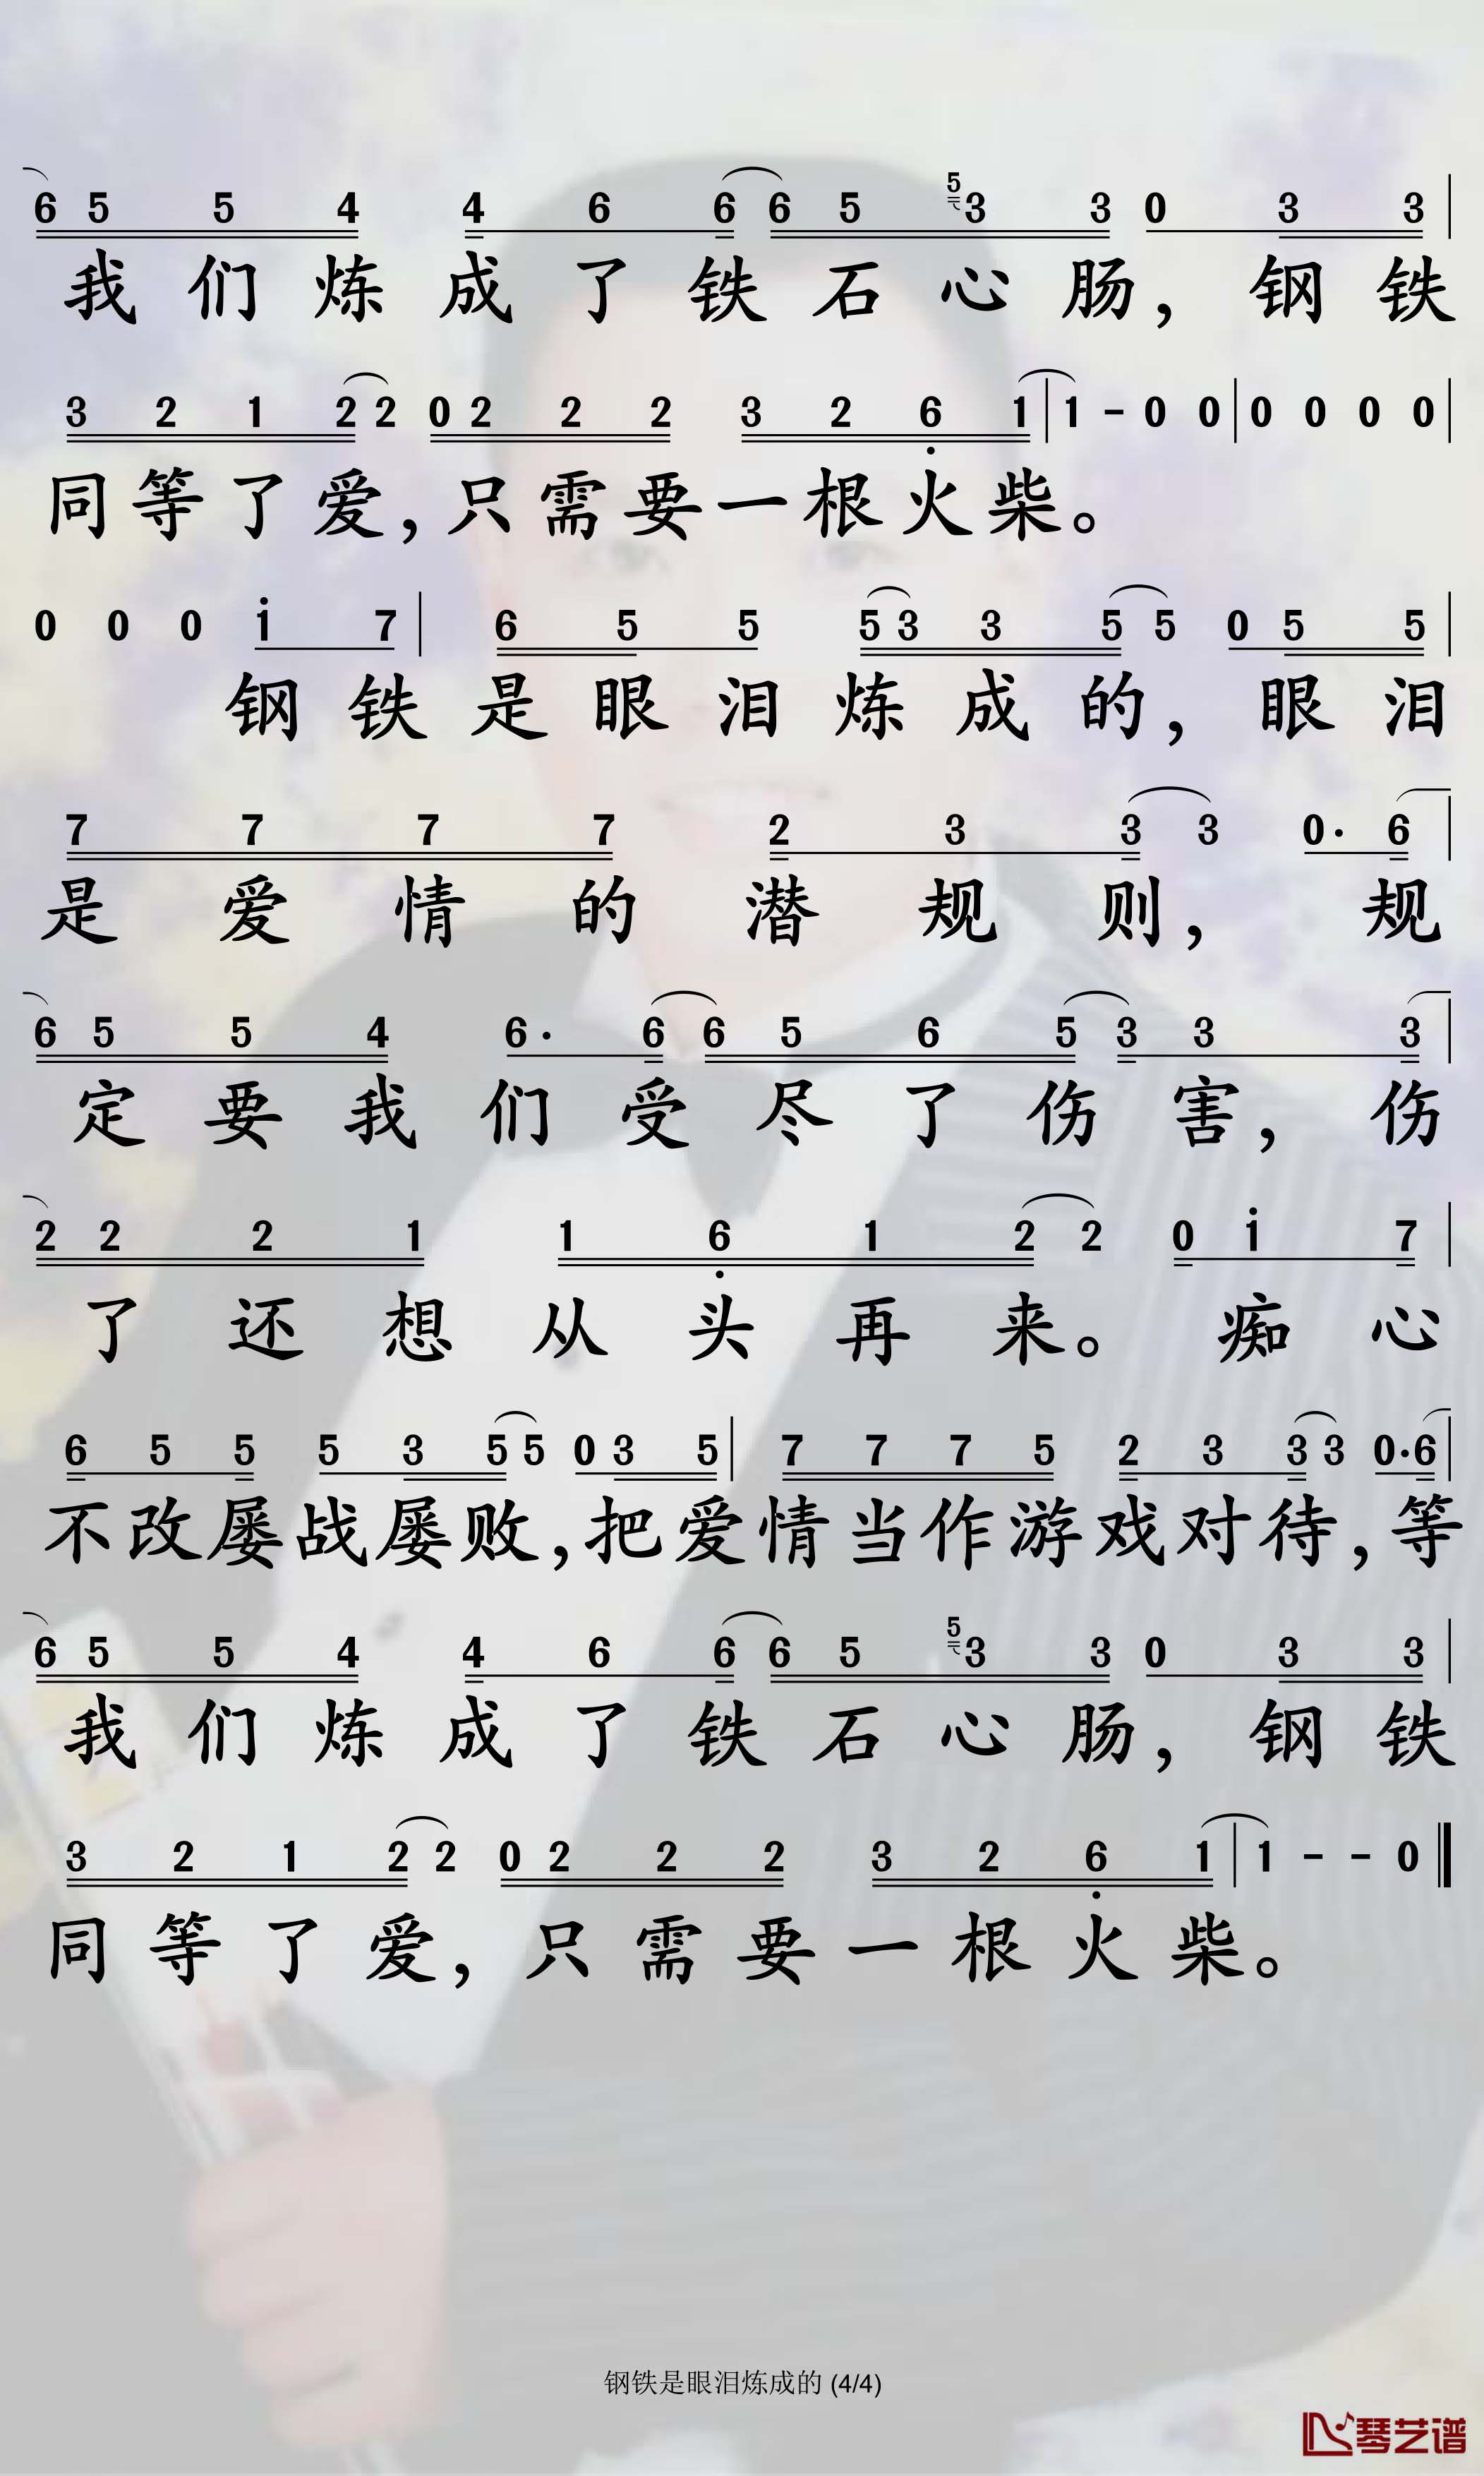 6 5 5 4 4 6 6 6 5 5 3 3 0 3 3
我们炼成了铁石心肠，钢铁
3 2 1 2 2 0 2 2 2 3 2 6 1 | 1 - 0 0 | 0 0 0 0 |
同等了爱，只需要一根火柴。
0 0 0 1 7 | 6 5 5 5 3 3 5 5 0 5 5 |
钢铁是眼泪炼成的，眼泪
7 7 7 7 2 3 3 3 0· 6 |
是爱情的潜规则，规
6 5 5 4 6· 6 6 5 6 5 3 3 3 |
定要我们受尽了伤害，伤
2 2 2 1 1 6 1 2 2 0 1 7 |
了还想从头再来。痴心
6 5 5 5 3 5 5 0 3 5 | 7 7 7 5 2 3 3 3 0·6 |
不改屡战屡败，把爱情当作游戏对待，等
6 5 5 4 4 6 6 6 5 5 3 3 0 3 3 |
我们炼成了铁石心肠，钢铁
3 2 1 2 2 0 2 2 2 3 2 6 1 | 1 - - 0 ‖
同等了爱，只需要一根火柴。
钢铁是眼泪炼成的 (4/4)
琴艺谱